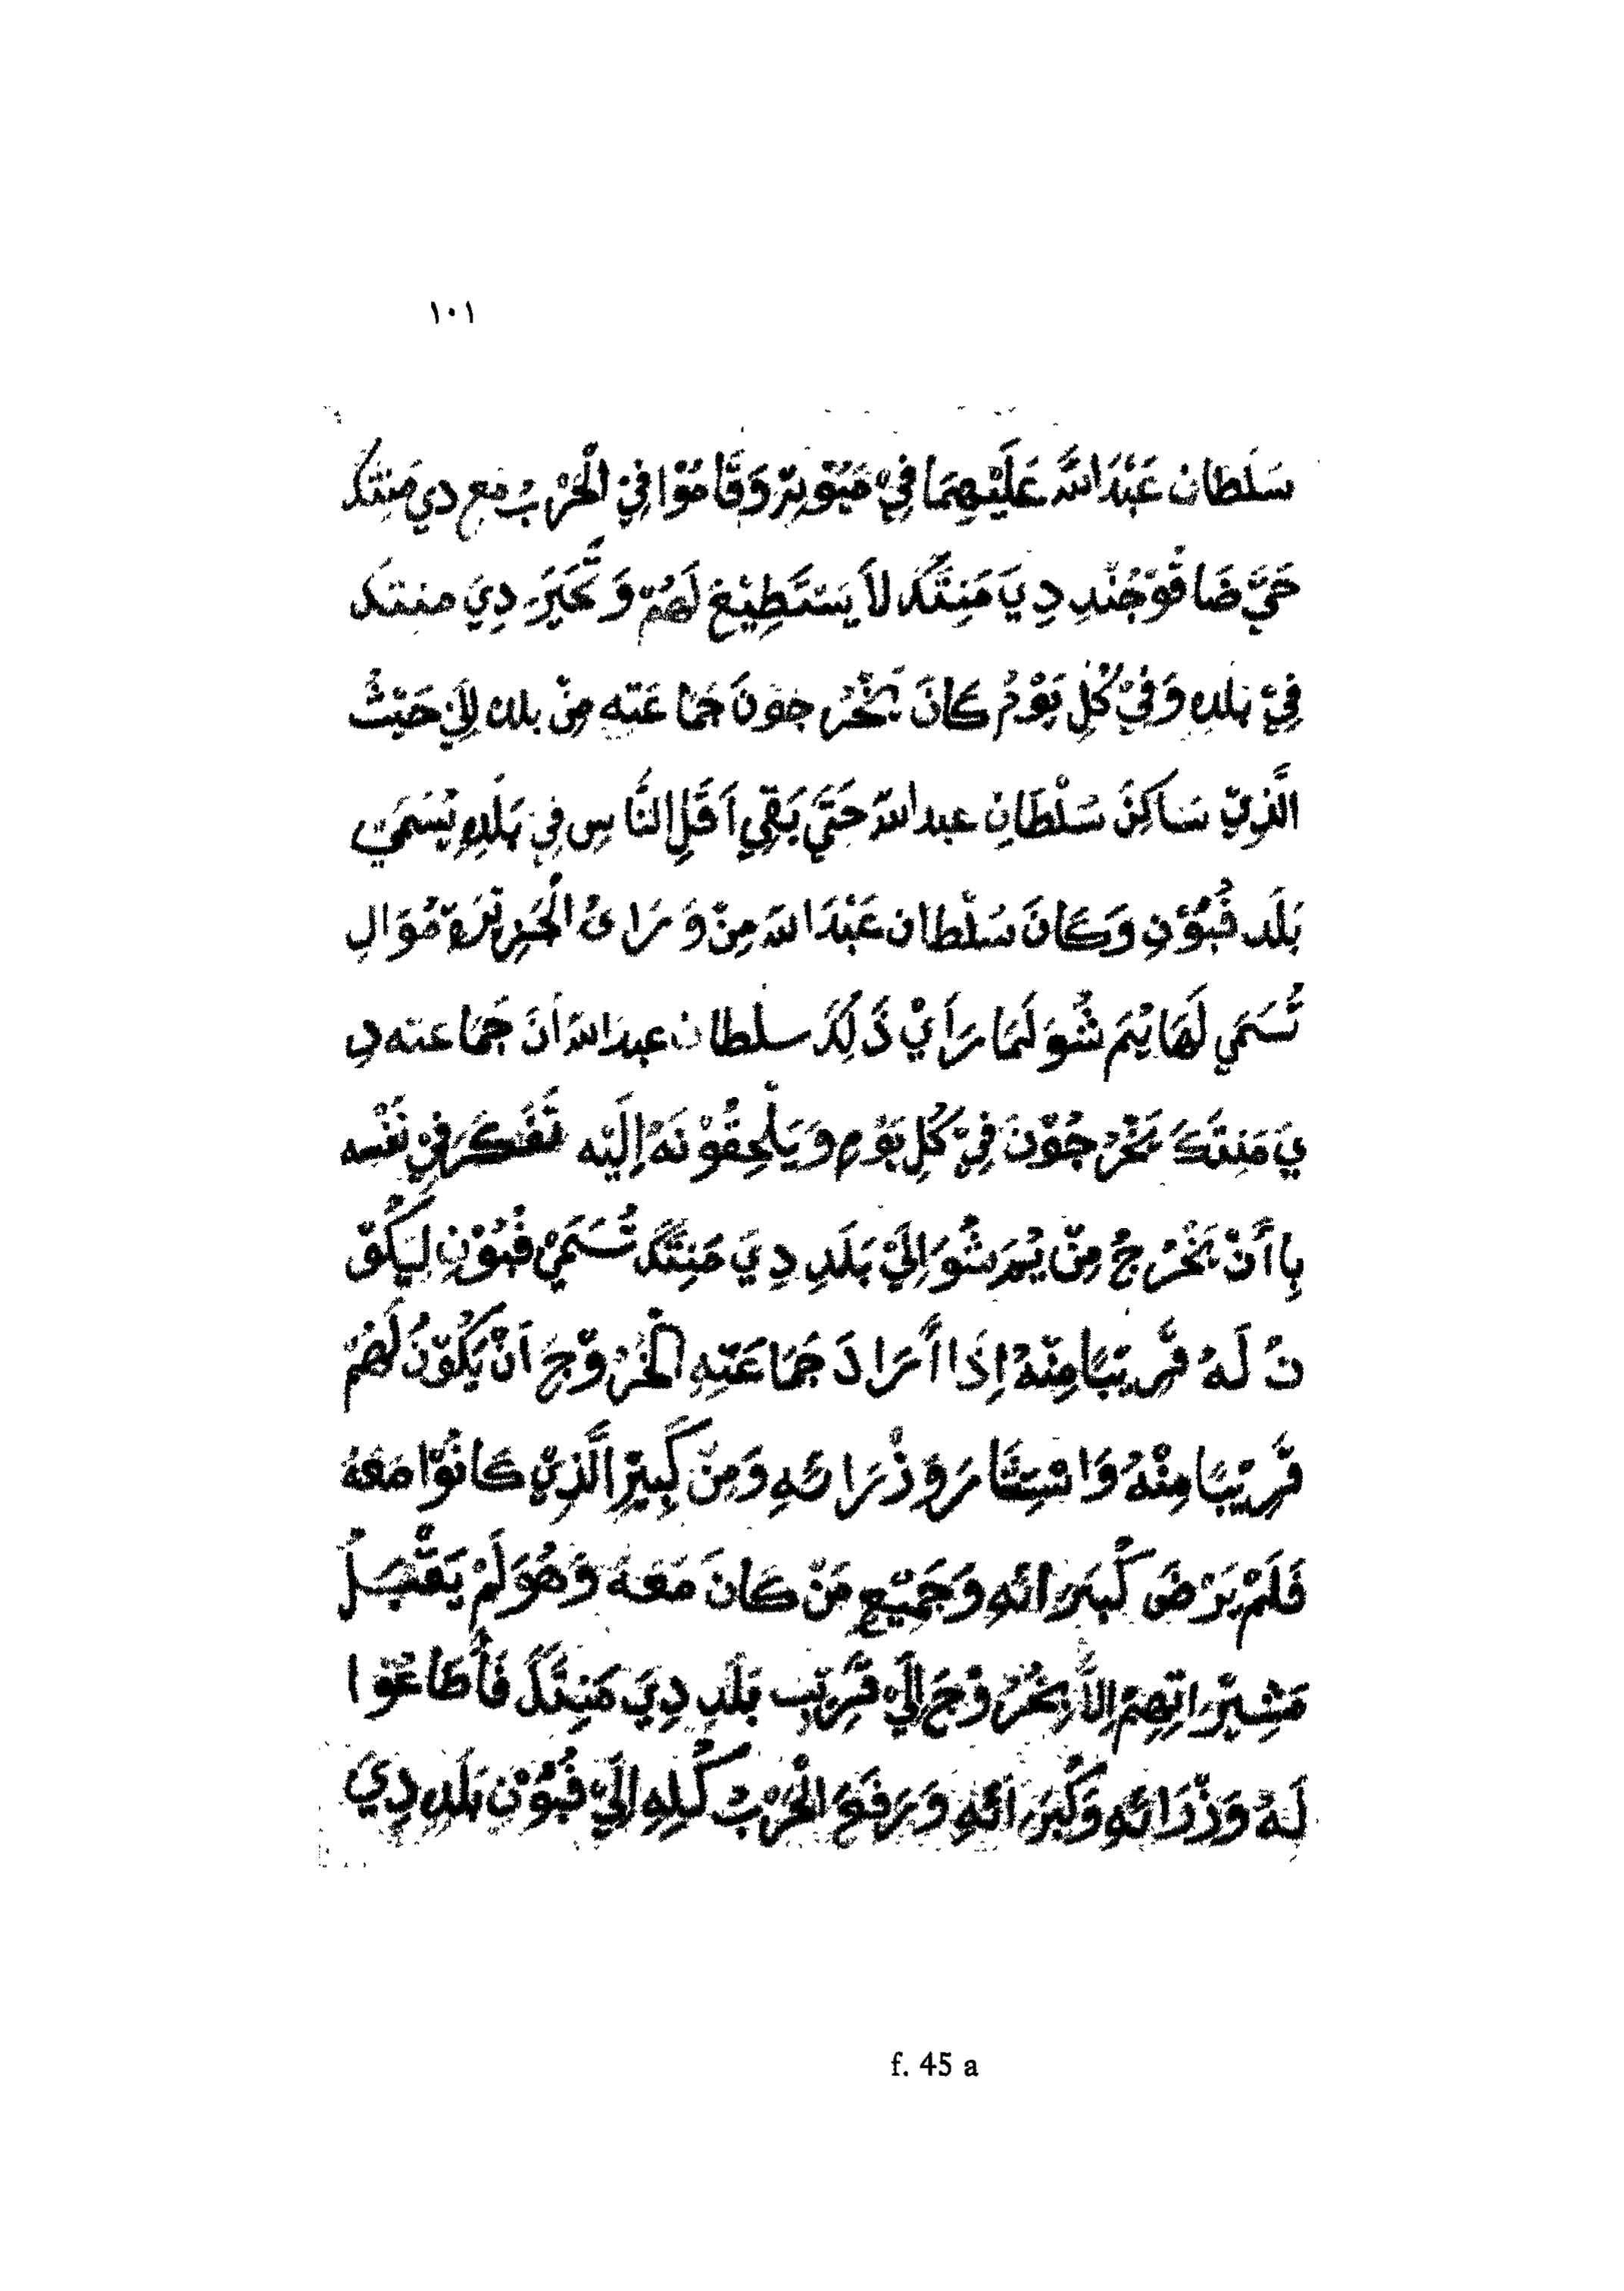 ١٠١
سَلْطان عَبْدَاللَّه عَلَيْهِمَا فِيْ مَبُوْيِرْ وَقَامُوْا فِيْ الْحَرْبُ مع دي مَنِتَك
حَيَّ ضَاقُوْ جُنْدِ دِيَ مَنِتَّكَ لاَ يَسْتَطِيْعْ لَهُمْ وَتَحَيَّرَ دِيَ منتكَ
فِيْ بلده وَفِيْ كُلِ يَوْمُ كَانَ يَخْرُجوْنَ جَمَاعَتِه مِنْ بلده لِاَيْ حَيْثُ
الَّذِيْ سَاكِنْ سَلْطَانِ عبدالله حَتَّي بَقِي اَقَلِ النَّاسِ فِي بَلْدِهِ يُسَمَيْ
بَلَد فُبُوْنِ وَكَانَ سَلْطان عَبْدَاللهَ مِنْ وَرَاىُ الْجَزِيْرَة مُوَالِ
تُسَمَي لَهَا يُمَ شُوَ لَمَا رَاَيْ ذَلِكَ سلطان عبدَاللهَ اَنَ جَمَاعته دِ
يَ مَنِتَكَ يَخْرُجُوْنَ فِيْ كُلِ يَوْمِ وَيَلْحِقُوْنَهُ اِلَيْه تَفَكَرَ فِيْ نَفْسه
بِااَنْ يَخْرُجُ مِنْ يُمَ شُوَ اِلَيْ بَلَدِ دِيَ مَنِتَكَ تُسَمَيْ فُبُوْنِ لِيَكُوْ
نَ لَهُ قَرِيْبًا مِنْهُ اِذَا اَرَادَ جَمَاعَتِهِ الْخُرُوْجَ اَنْ يَكُوْنُ لَهُمْ
قَرِيْبًا مِنْهُ وَاسْتِشَارَ وَذْرَائهِ وَمِنْ كَبِيْرِ الَّذِيْ كَانُوْا مَعَهُ
فَلَمْ يَرْضَ كُبَرَائهِ وَجَمِيْعِ مَنْ كَانَ مَعَهُ وَهُوَ لَمْ يَقْبَلُ
مَشِيْرَاتِهِمْ اِلاَّ بِخُرُوْجَ اِلَيْ قَرِيْبِ بَلَدِ دِيَ مَنِتَكَ فَأَطَاعُوْا
لَهُ وَذْرَائهِ وَكُبَرَائهِ وَرَفَعَ الْحَرْبُ كُلِهِ اِلَيْ فُبُوْنِ بَلَدِ دِيَ
f. 45 a